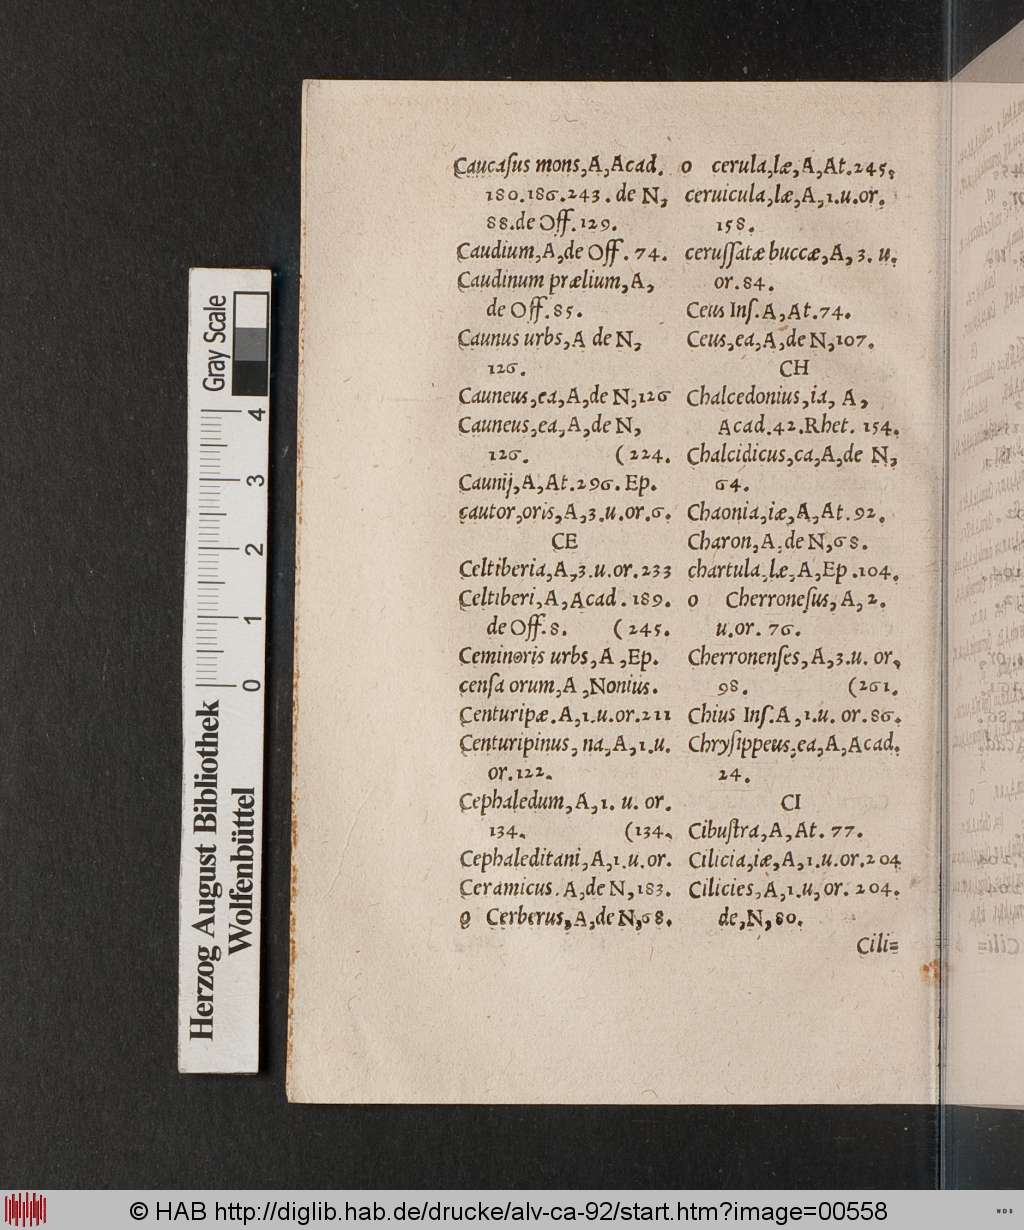 Caucaſus mons,A,Acad.
180.186.243. de N,
88.de Off.129.
Caudium,A,de Off. 74.
Caudinum prælium,A,
de Off.85.
Caunus urbs,A de N,
126.
Cauneus,ea,A,de N,126
Cauneus,ea,A,de N,
126. (224.
Caunij,A,At.296. Ep.
cautor,oris,A,3.u.or.6.
CE
Celtiberia,A,3.u.or.233
Celtiberi,A,Acad. 189.
de Off.8. (245.
Ceminoris urbs,A,Ep.
cenſa orum,A,Nonius.
Centuripæ.A,1.u.or.211
Centuripinus, na,A,1.u.
or.122.
Cephaledum,A,1. u. or.
134. (134.
Cephaleditani,A,1.u.or.
Ceramicus. A,de N,183.
o Cerberus,A,de N,68.
o cerula,læ,A,At.245.
ceruicula,læ,A,1.u.or.
158.
ceruſſatæ buccæ,A,3. u.
or.84.
Ceus Inſ.A,At.74.
Ceus,ea,A,de N,107.
CH
Chalcedonius,ia, A,
Acad.42.Rhet. 154.
Chalcidicus,ca,A,de N,
64.
Chaonia,iæ,A,At.92.
Charon,A,de N,68.
chartula,læ,A,Ep.104.
o Cherroneſus,A,2.
u.or. 76.
Cherronenſes,A,3.u. or.
98. (261.
Chius Inſ.A,1.u. or.86.
Chryſippeus,ea,A,Acad.
24.
CI
Cibuſtra,A,At. 77.
Cilicia,iæ,A,1.u.or.204
Cilicies,A,1.u,or. 204.
de,N,80.
Cili=
Gray Scale
4
3
2
1
0
Herzog August Bibliothek
Wolfenbüttel
© HAB http://diglib.hab.de/drucke/alv-ca-92/start.htm?image=00558